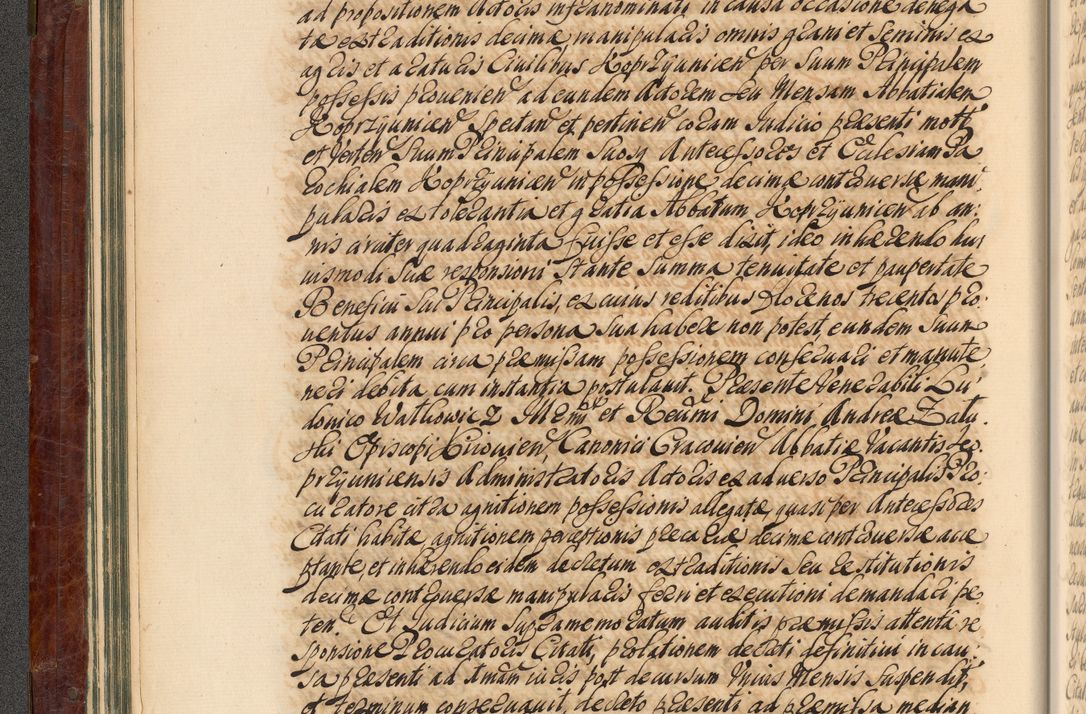 ad propositionem Actoris infranominati in causa occasione denega
tæ extraditionis decimæ manipularis omnis grani et seminis ex
agris et araturis Civilibus Koprzÿunicen per Suum Principalem
possessis provenien ad eundem Actorem seu Mensam Abbatialem
Koprzÿunicen Spectan et pertinen coram Judicio præsenti mott
et verten Suum Principalem Suosq Antecessores et Ecclesiam Pa
rochialem Koprzÿunicen in possessione decimæ controversæ mani
pularis ex tolerantia et gratia Abbatum Koprzÿunicen ab an:
nis circiter quadraginta fuisse et esse dixit, ideo inhærendo hui
usmodi Suæ responsioni Stante Summa tenuitate et paupertate
Beneficii Sui Principalis, ex cuius reditibus florenos trecentos pro:
ventus annui pro persona Sua habere non potest, eundem Suum
Principalem circa præmissam possessionem conservari et manute
neri debita cum instantia postulavit. Præsente Venerabili Lu
dovico Watkowicz Illmi et Rendmi Domini Andreæ Zalu:
ski Episcopi Kiiovien, Canonici Cracovien Abbatiæ Vacantis Ko
przÿunicensis Administratoris Actoris ex adverso Principalis Pro:
curatore citra agnitionem possessionis allegatæ quasi per Antecessores
Citati habitæ, agnitionem perceptionis precariæ decimæ controversæ acce
ptante, et inhærendo eidem decretum extraditionis seu restitutionis
decimæ controversæ manipularis ferri et executioni demandari pe
ten. Et Judicium Supramemoratum auditis præmissis attenta re
sponsione Procuratoris Citati, prolationem decreti definitivi in cau:
sa præsenti ad Amam iuris post decursum Unius Mensis Suspendit,
et terminum conservavit, decreto præsenti ad præmissa median